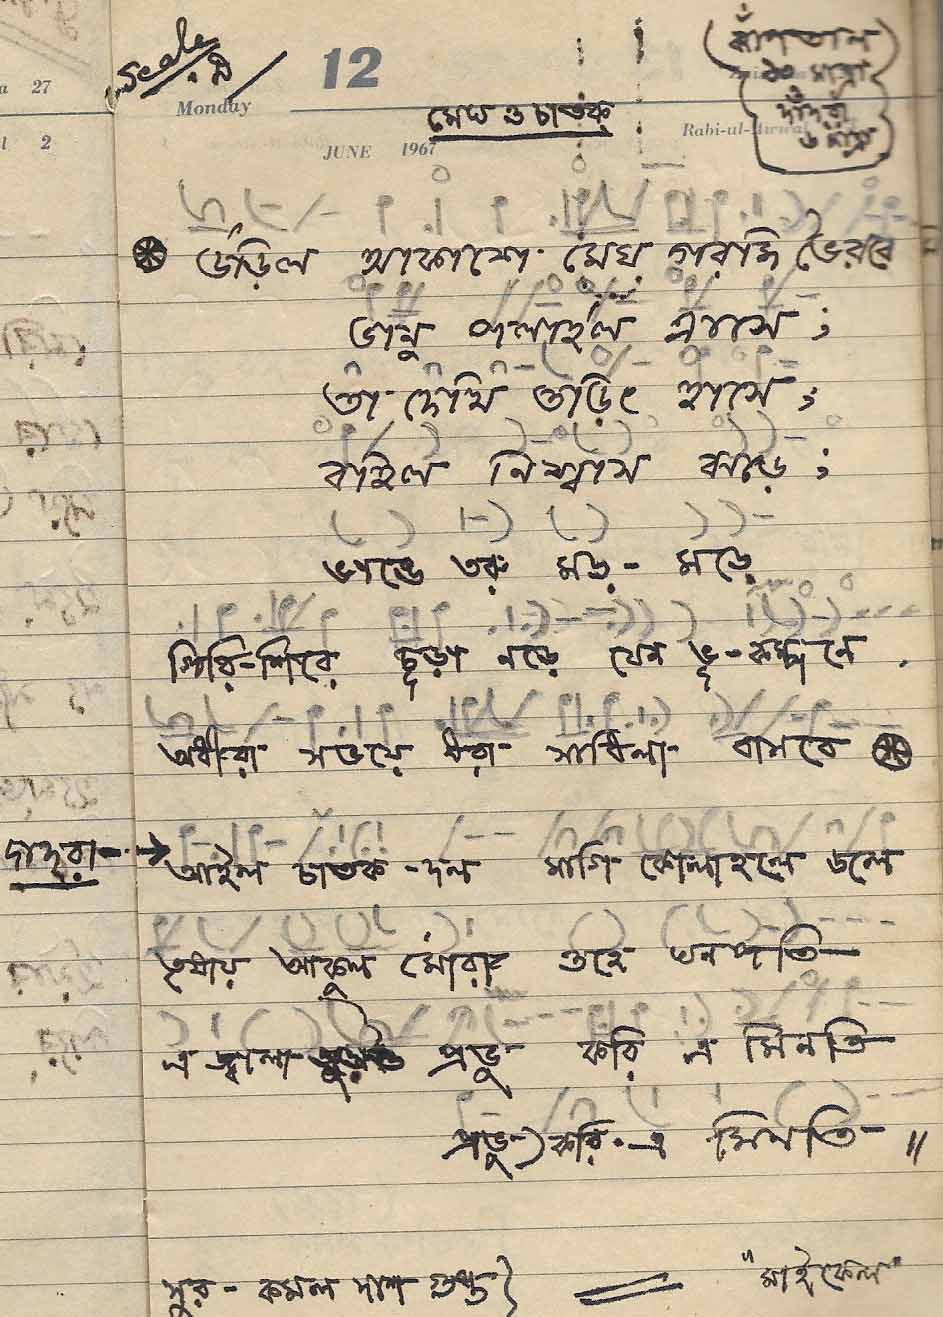 Scale
12
Monday
JUNE 1967
Rabi-ul-Awwal
27
2
ঝাঁপতাল
১০ মাত্রা
দাদ্‌রা
৬ মাত্রা
মেঘ ও চাতক
উড়িল আকাশে মেঘ গরজি ভৈরবে
ভানু পলাইল ত্রাসে ;
তা দেখি তড়িৎ হাসে ;
বহিল নিশ্বাস ঝড়ে ;
ভাঙে তরু মড় - মড়ে
গিরি-শিরে চূড়া নড়ে যেন ভূ-কম্পনে .
অধীরা সভয়ে ধরা সাধিলা বাসবে
দাদ্‌রা →
আইল চাতক-দল মাগি কোলাহলে জলে
তৃষায় আকুল মোরা ওহে ঘনপতি
এ জ্বালা জুড়াও প্রভু করি এ মিনতি
প্রভু) করি এ মিনতি ॥
সুর - কমল দাশ গুপ্ত }
"মাইকেল"